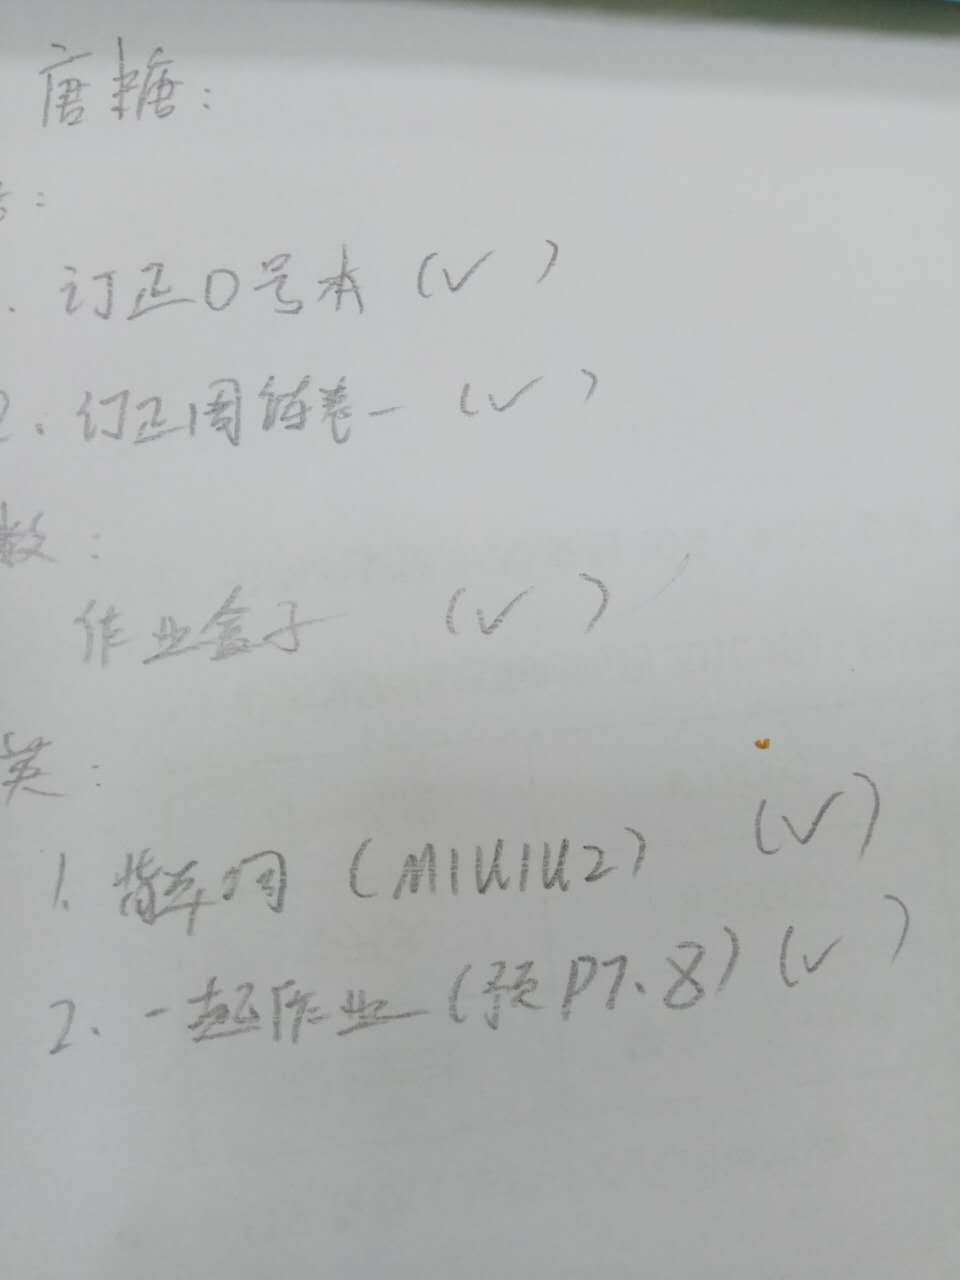 唐糖：
：
. 订正0号本（√）
2. 订正周练卷一（√）
数：
作业盒子（√）
英：
1. 背单词（M1U1U2）（√）
2. 一起作业（预P7.8）（√）